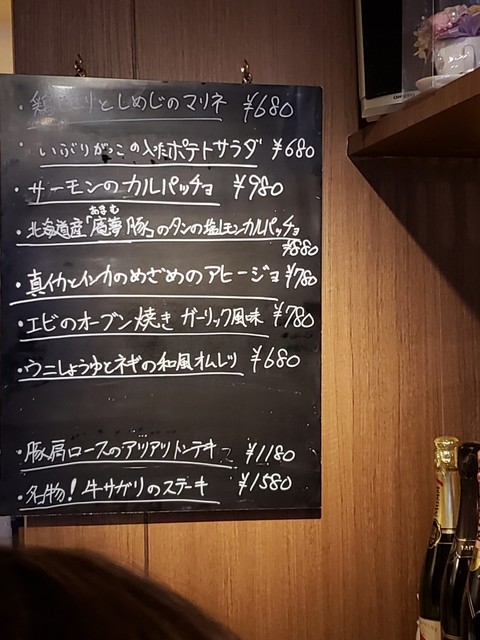 ・鶏としめじのマリネ ¥680
・いぶりがっこの入ったポテトサラダ ¥680
・サーモンのカルパッチョ ¥980
あまむ
・北海道産「庵夢豚」のタンの塩レモンカルパッチョ
¥880
・真イカとインカのめざめのアヒージョ ¥780
・エビのオーブン焼き ガーリック風味 ¥780
・ウニしょうゆとネギの和風オムレツ ¥680
・豚肩ロースのアツアツトンテキ ¥1180
・名物！牛サガリのステーキ ¥1580